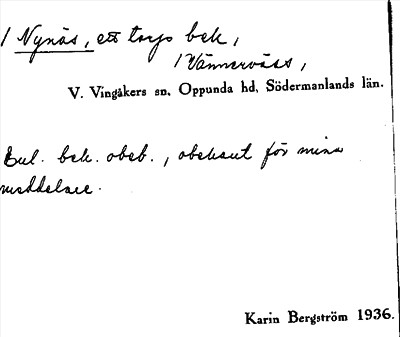 / Nynäs, ett torps bek,
/ Vännevass,
V. Vingåkers sn, Oppunda hd, Södermanlands län.
Enl. bek. obeb., obekant för mina
meddelare.
Karin Bergström 1936.